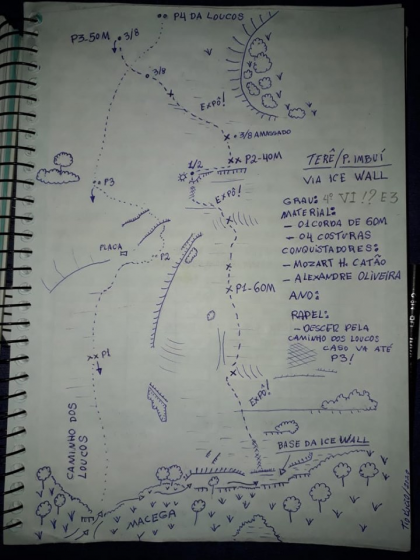 P4 DA LOUCOS
P3-50M
3/8
3/8
EXPÔ!
3/8 AMASSADO
P2-40M
1/2
EXPÔ!
TERÊ/P. IMBUÍ
VIA ICE WALL
GRAU: 4º VI !? E3
MATERIAL:
- 01 CORDA DE 60M
- 04 COSTURAS
CONQUISTADORES:
- MOZART H. CATÃO
- ALEXANDRE OLIVEIRA
ANO:
RAPEL:
- DESCER PELA
CAMINHO DOS LOUCOS
CASO VA ATÉ
P3!
P3
PLACA
P2
P1-60M
P1
EXPÔ!
CAMINHO DOS
LOUCOS
BASE DA ICE WALL
MACEGA